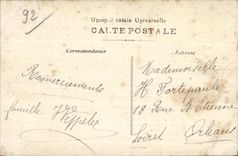 92
Union Postale Universelle
CARTE POSTALE
Correspondance
Adresse
Remerciements
famille
Mademoiselle
H. Fortépaule
19 Rue St Etienne
Orléans
Loiret